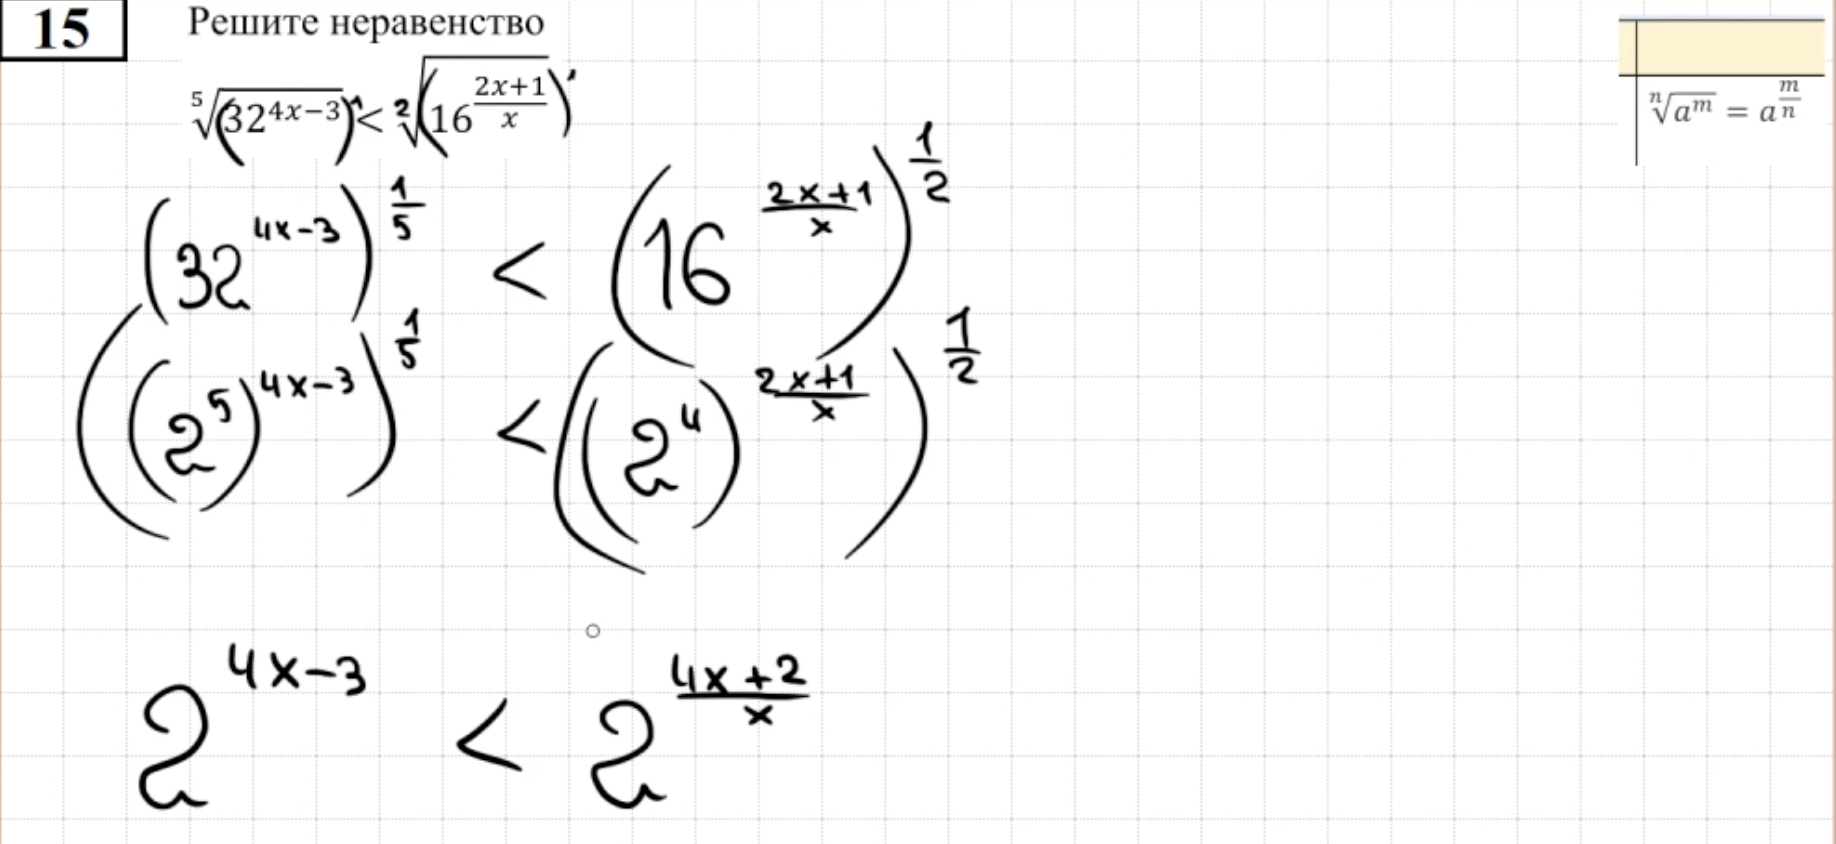 15 Решите неравенство
⁵√(32^(4x−3))¹ < ²√(16^((2x+1)/x))¹
ⁿ√(a^m) = a^(m/n)
(32^(4x−3))^(1/5) < (16^((2x+1)/x))^(1/2)
((2^5)^(4x−3))^(1/5) < ((2^4)^((2x+1)/x))^(1/2)
2^(4x−3) < 2^((4x+2)/x)